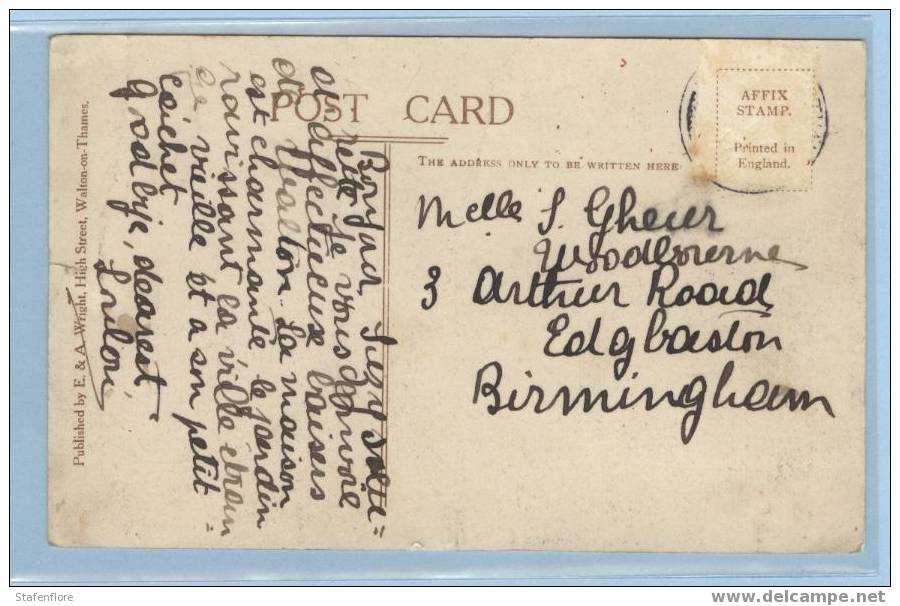 POST CARD
THE ADDRESS ONLY TO BE WRITTEN HERE
AFFIX
STAMP.
Printed in
England.
Melle S. Gheur
Woodbourne
3 Arthur Road
Edgbaston
Birmingham
Bonjour Suzy
petite je vous envoie
affectueux baisers
de Walton. La maison
est charmante le jardin
ravissant la ville
vieille et a son petit
cachet
Good bye, dearest
Published by E. & A. Wright, High Street, Walton-on-Thames.
Stafenflore
www.delcampe.net